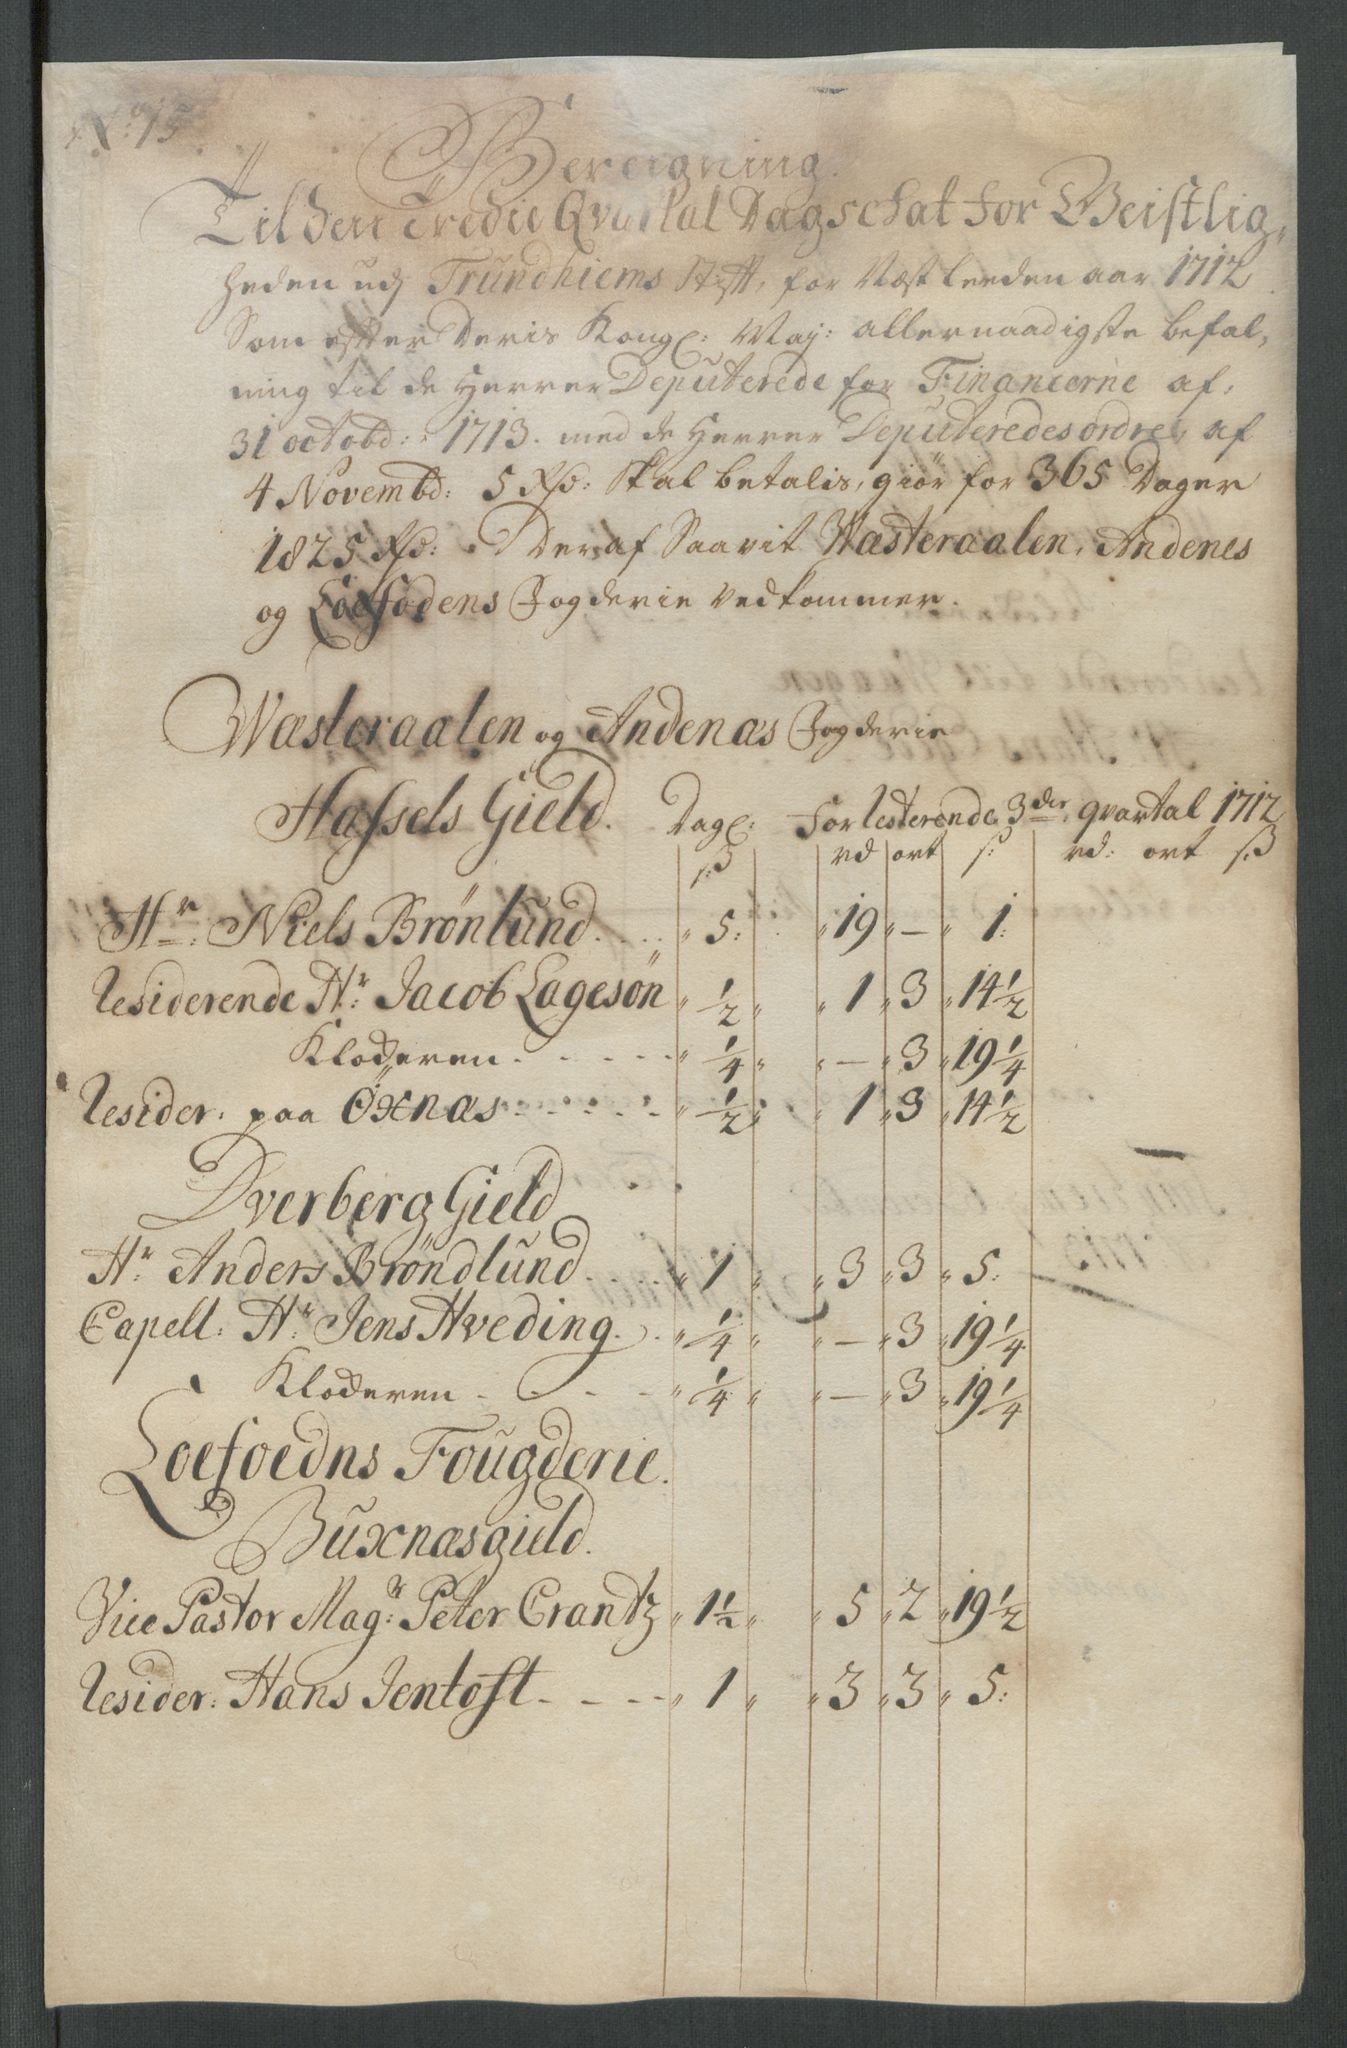 No: 15
Bereigning
Til den Tredie Qvartal Dagschat for Geistlig,
heden udj Trundhiems Stifft, for Næst leeden aar 1712
Som efter Deris Kongl: May: allernaadigste befal,
ning til de Herrer Deputerede for Financerne af,
31 octobd: 1713. med de Herrer Deputeredes ordre, af
4 Novembd: 5 Rd: skal betalis, giör for 365 Dager
1825 Rd: Deraf Saavit Wæsteraalen, Andenes
og Loefodens Fogderie vedkommer.
Wæsteraalen og Andenæs Fogderie
Hassels Gield. Dagl: For resterende 3die qvartal 1712
sß rd ort s: rd: ort sß
Hr: Niels Brönlund . . . . 5: 19 — 1:
Residerende Hr: Jacob Lagesön 1/2 1 3 14 1/2
Klockeren . - - - - 1/4 — 3 19 1/4
Resider: paa Öxnæs . . . . . 1/2 1 3 14 1/2
Dverberg Gield
Hr: Anders Bröndlund . . . . 1 3 3 5:
Capell: Hr: Jens Hveding . . 1/4 — 3 19 1/4
Klockeren - - - - 1/4 — 3 19 1/4
Loefoedns Fougderie.
Buxnæsgield.
Vice Pastor Magr: Peter Crantz 1 1/2 5 2 19 1/2
Resider: Hans Jentoft - - - - 1 3 3 5: